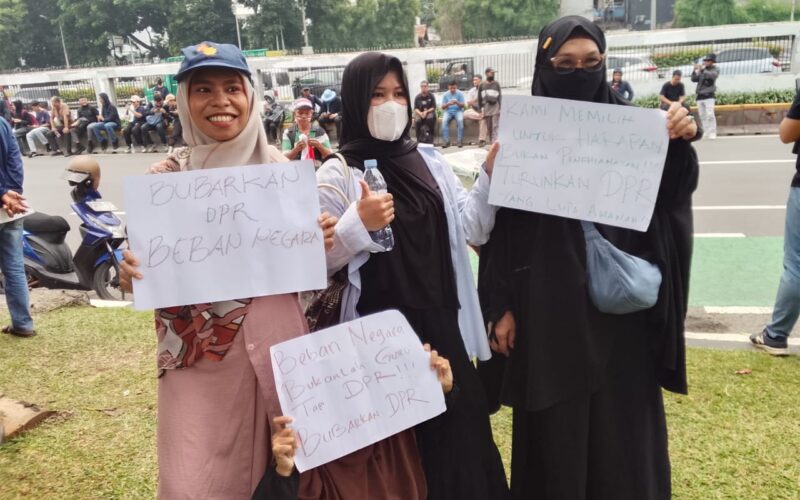 BUBARKAN
DPR
BEBAN NEGARA
KAMI MEMILIH
UNTUK HARAPAN
BUKAN PENGHIANATAN!!!
TURUNKAN DPR
YANG LUPA AMANAH!!
Beban Negara
Bukanlah Guru
Tapi DPR!!!
BUBARKAN DPR